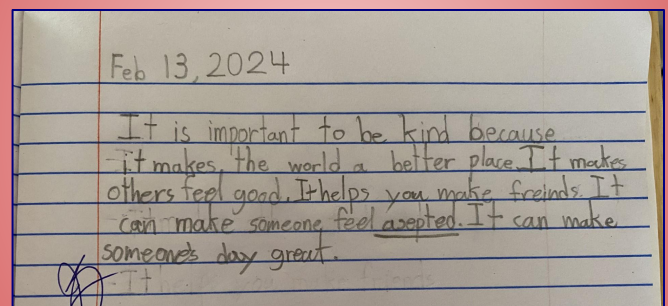 Feb 13, 2024
It is important to be kind because
it makes the world a better place. It makes
others feel good. It helps you make freinds. It
can make someone feel asepted. It can make
someone's day great.
It